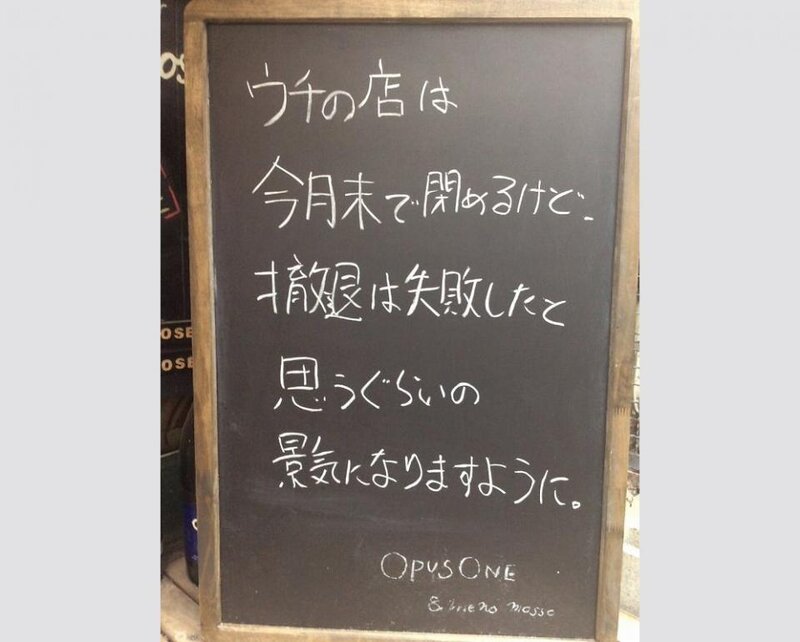 ウチの店は
今月末で閉めるけど、
撤退は失敗したと
思うぐらいの
景気になりますように。
OPUSONE
& meno mosso
OSE
OSE